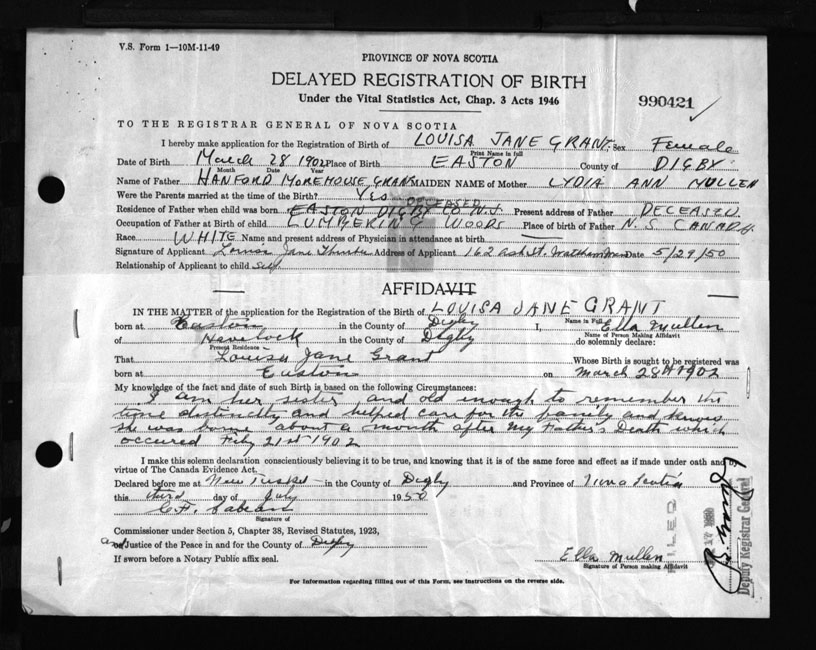 V.S. Form 1—10M-11-49
PROVINCE OF NOVA SCOTIA
DELAYED REGISTRATION OF BIRTH
Under the Vital Statistics Act, Chap. 3 Acts 1946
990421
TO THE REGISTRAR GENERAL OF NOVA SCOTIA
I hereby make application for the Registration of Birth of LOUISA JANE GRANT. Sex Female
Print Name in full
Date of Birth March 28 1902 Place of Birth EASTON County of DIGBY
Month Date Year
Name of Father HANFORD MOREHOUSE GRANT MAIDEN NAME of Mother LYDIA ANN MULLEN
Were the Parents married at the time of the Birth? YES
DECEASED
Residence of Father when child was born EASTON DIGBY CO N.S. Present address of Father DECEASED.
Occupation of Father at Birth of child LUMBERING WOODS Place of birth of Father N.S. CANADA
Race WHITE Name and present address of Physician in attendance at birth —
Signature of Applicant Louisa Jane Address of Applicant 162 Ash St. Waltham Mass Date 5/29/50
Relationship of Applicant to child Self
AFFIDAVIT
IN THE MATTER of the application for the Registration of the Birth of LOUISA JANE GRANT
Name in Full
born at Easton in the County of Digby I, Ella Mullen
Name of Person Making Affidavit
of Havelock in the County of Digby do solemnly declare:
Present Residence
That Louisa Jane Grant Whose Birth is sought to be registered was
born at Easton on March 28th 1902
My knowledge of the fact and date of such Birth is based on the following Circumstances:
I am her sister and old enough to remember the
time distinctly and helped care for the family and know
she was borne about a month after my Father's Death which
occured Feby 21st 1902
I make this solemn declaration conscientiously believing it to be true, and knowing that it is of the same force and effect as if made under oath and by
virtue of The Canada Evidence Act.
Declared before me at New Tusket in the County of Digby and Province of Nova Scotia
this third day of July 1950
C.F. Sabean
Signature of
Commissioner under Section 5, Chapter 38, Revised Statutes, 1923,
and Justice of the Peace in and for the County of Digby
If sworn before a Notary Public affix seal.
Ella Mullen
Signature of Person making Affidavit
FILED
Deputy Registrar General
For Information regarding filling out of this Form, see Instructions on the reverse side.